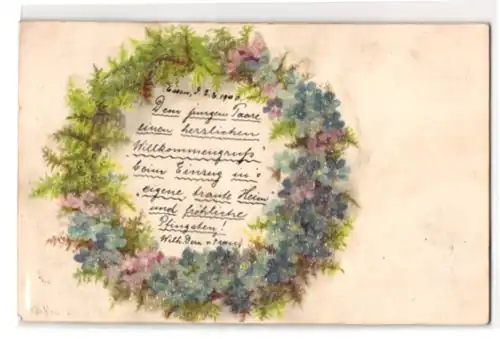 Essen, d. 2.6.1900
Dem jungen Paare
einen herzlichen
Willkommengruß
beim Einzug in's
eigene traute Heim
und fröhliche
Pfingsten!
Wilh.